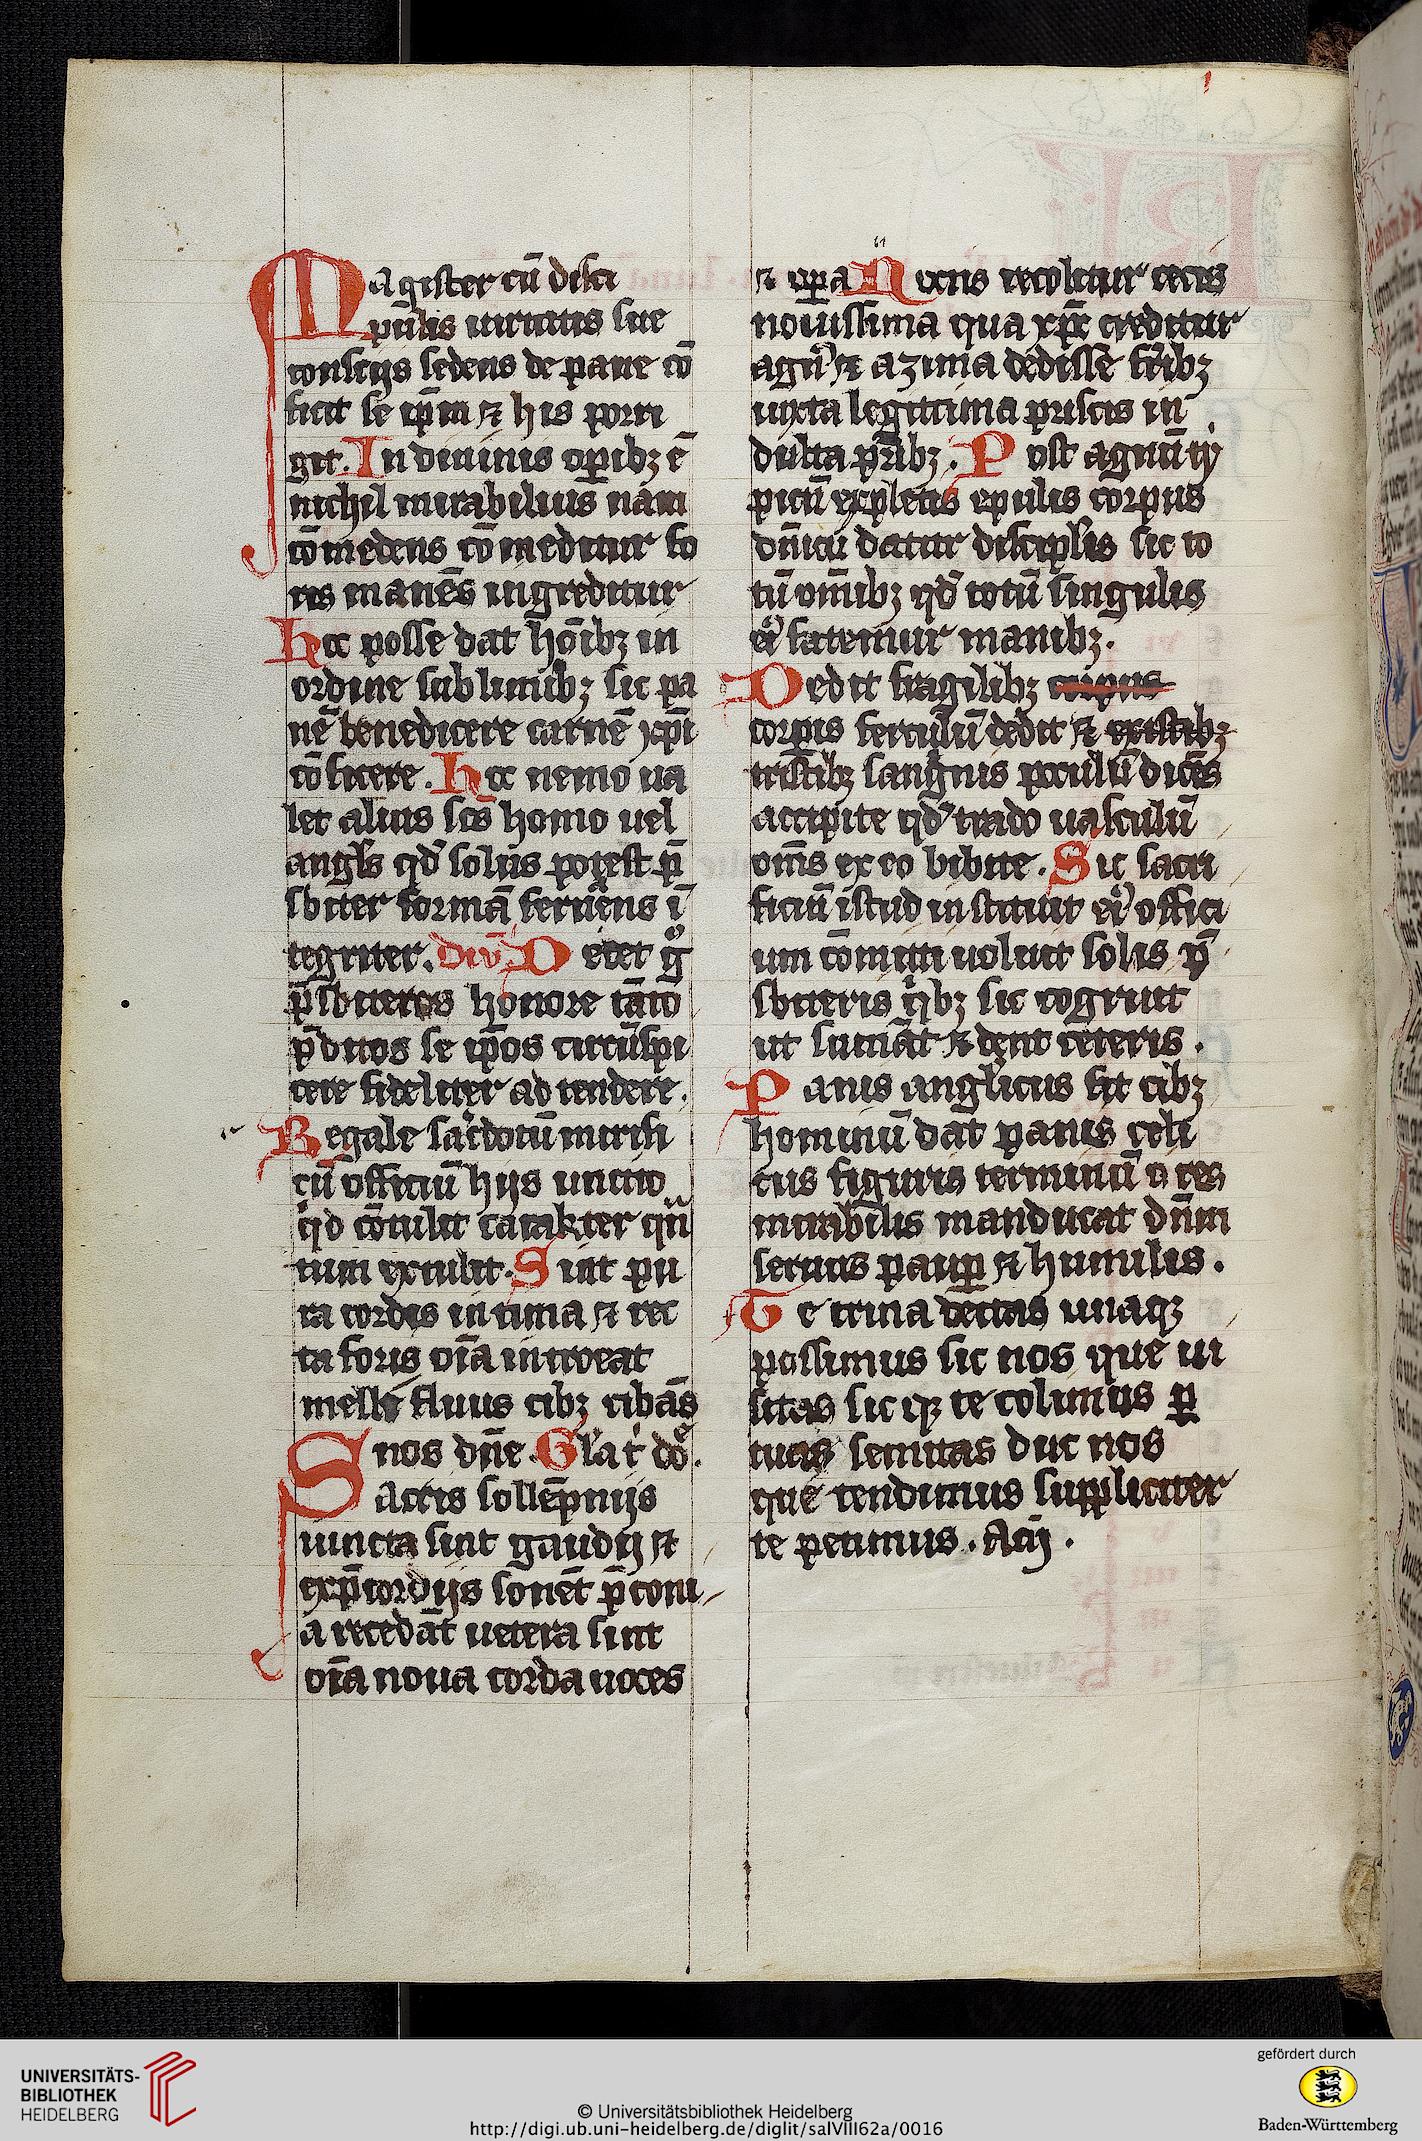 Magister cū disci
pulis uirtutis sue
consciis sedens de pane cō
ficit se ip̄m ⁊ his porri
git. In diuinis oꝑibꝫ ē
nichil mirabilius nam
cōmedens cōmeditur fo
ris manēs ingreditur
Hec posse dat hōibꝫ in
ordine sublimibꝫ sic pa
nē benedicere carnē xp̄i
cōficere. Hec nemo ua
let alius sc̄s homo uel
angl̄s qd̄ solus potest p̄
sbiter formā seruēns ī
tegriter. Div̄. Decet gͦ
p̄sbiteros honore tāto
p̄ditos se ip̄os circūspi
cere fideliter ad tendere.
Regale sac̄dotū mirifi
cū officiū hijs unctio
qd cōtulit carakter qn̄
tum extulit. Sint pu
ra cordis intima ⁊ rec
ta foris oīa introeat
mellifluus cibꝫ cibās
nos dn̄e. Gl̄a t̄ dō.
Sacris sollēpnijs
iuncta sint gaudij ⁊
ex p̄cordijs sonēt p̄coni
a recedāt uetera sint
oīa noua corda uoces
⁊ oꝑa Noctis recolitur cenis
nouissima qua xp̄c creditur
agnū ⁊ azima dedisse fr̄ibꝫ
iuxta legittima priscis in
dulta pr̄ibꝫ. Post agnū tij
picū expletis epulis corpus
dn̄icū datur discip̄lis sic to
tū om̄ibꝫ qd̄ totū singulis
eiꝰ fatemur manibꝫ.
Dedit fragilibꝫ corpus
corpis ferculū dedit ⁊ exstibꝫ
tristibꝫ sanguis poculū dicēs
accipite qd̄ trado uasculū
om̄s ex eo bibite. Sic sacri
ficiū istud instituit eiꝰ offici
um cōmitti uoluit solis p̄
sbiteris qͥbꝫ sic cogruit
ut sumāt ⁊ dent ceteris.
Panis anglicus fit cibꝫ
hominū dat panis celi
cus figuris terminū o res
mirabilis manducat dn̄m
seruus pauꝑ ⁊ humilis.
Te trina deitas unaqꝫ
possimus sic nos que ui
sitas sicqꝫ te colimus ꝑ
tuas semitas duc nos
que tendimus suppliciter
te petimus. Am̄.
UNIVERSITÄTS-
BIBLIOTHEK
HEIDELBERG
© Universitätsbibliothek Heidelberg
http://digi.ub.uni-heidelberg.de/diglit/salVIII62a/0016
gefördert durch
Baden-Württemberg